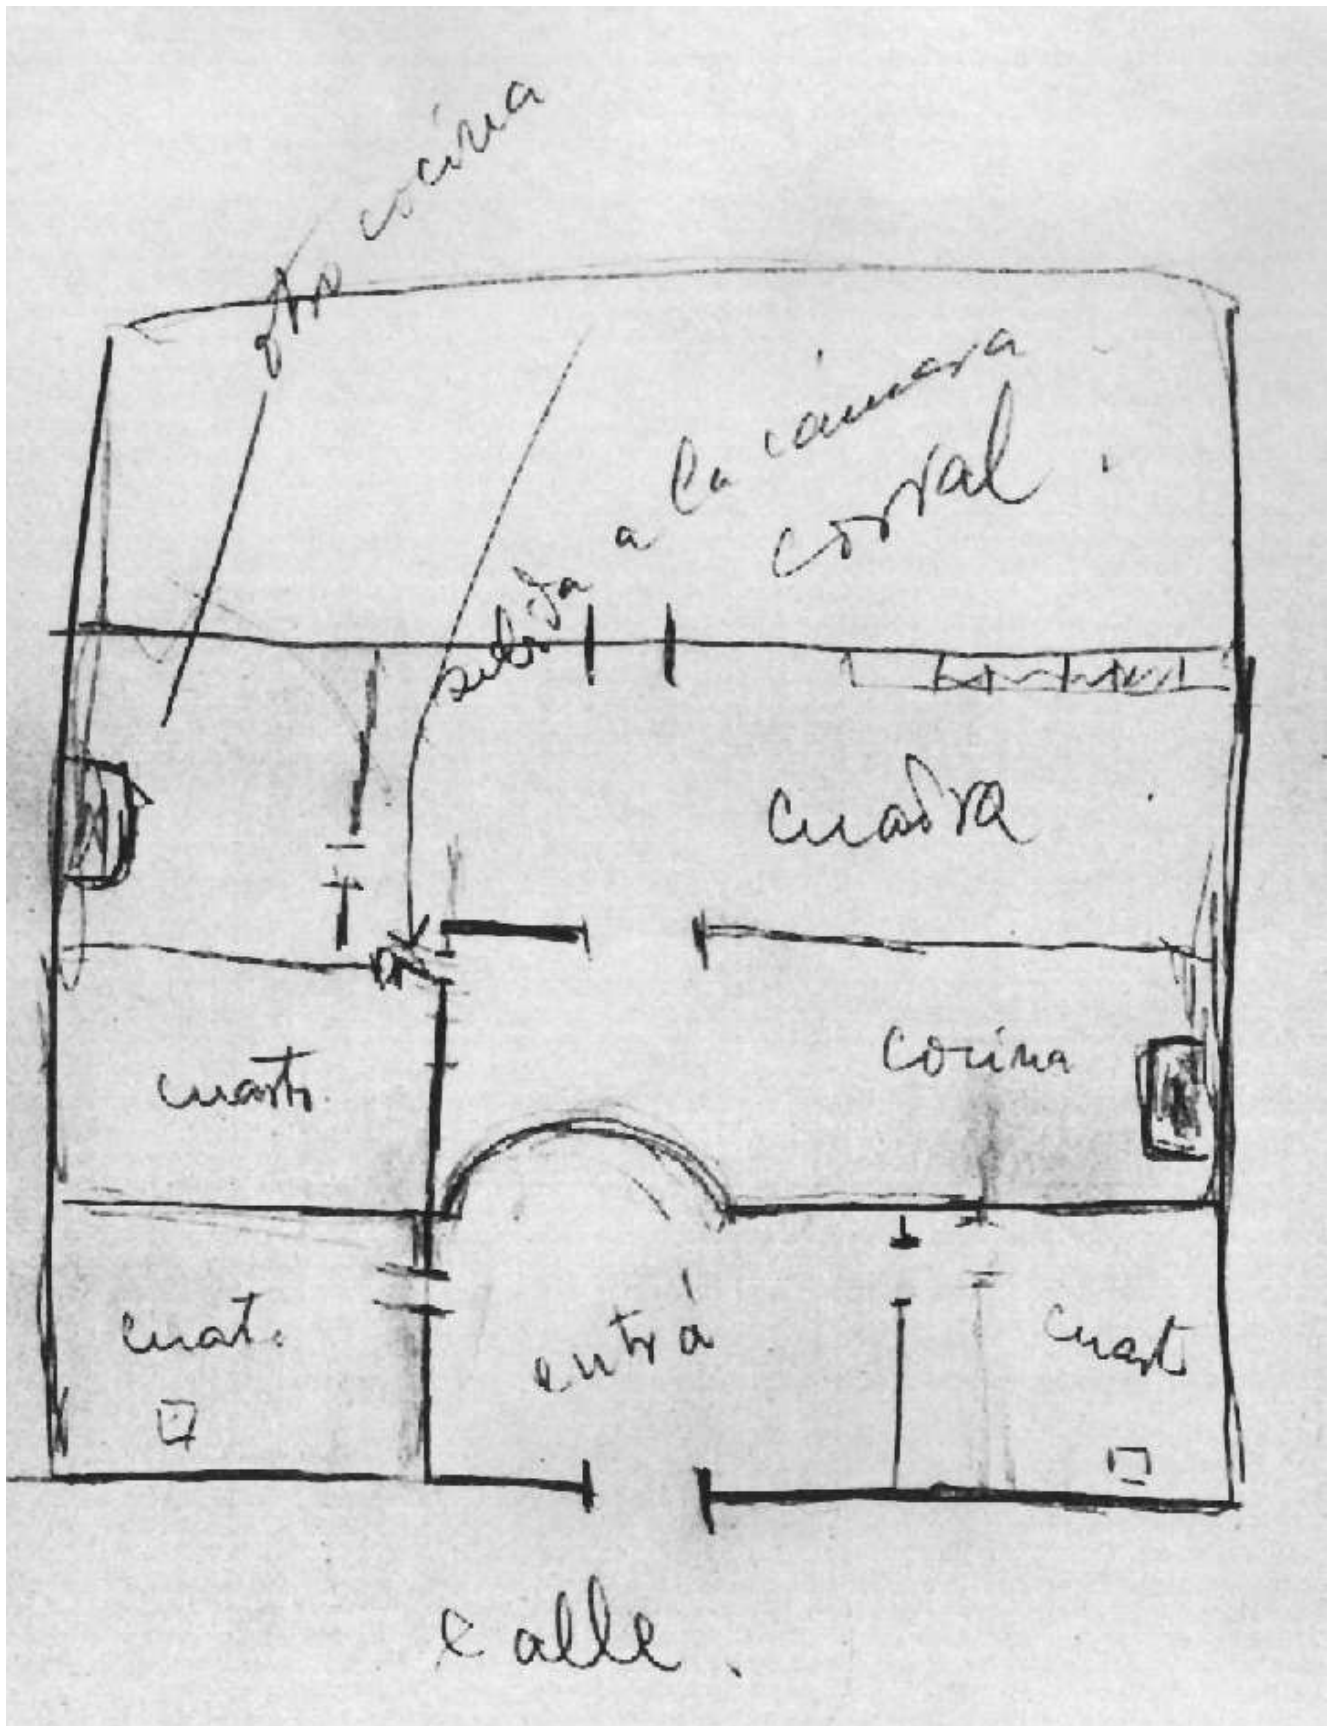 otra cocina
subida a la cámara
corral
cuadra
cuarto
cocina
cuart.
entrá
cuart
calle.